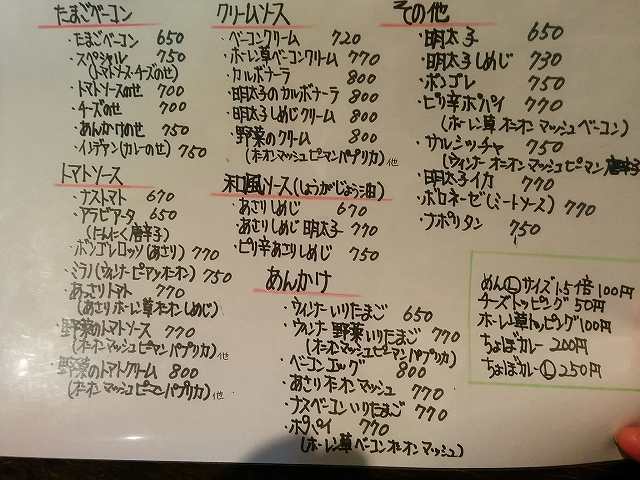 たまごベーコン
・たまごベーコン 650
・スペシャル 750
(トマトソース・チーズのせ)
・トマトソースのせ 700
・チーズのせ 700
・あんかけのせ 750
・インデアン(カレーのせ) 750
トマトソース
・ナストマト 670
・アラビアータ 650
(にんにく唐辛子)
・ボンゴレロッソ(あさり) 770
・ミラノ(ウィンナーピーマンオニオン) 750
・あっさりトマト 770
(あさりホーレン草オニオンしめじ)
・野菜のトマトソース 770
(オニオンマッシュピーマンパプリカ)他
・野菜のトマトクリーム 800
(オニオンマッシュピーマンパプリカ)他
クリームソース
・ベーコンクリーム 720
・ホーレン草ベーコンクリーム 770
・カルボナーラ 800
・明太子のカルボナーラ 800
・明太子しめじクリーム 800
・野菜のクリーム 800
(オニオンマッシュピーマンパプリカ)他
和風ソース(しょうがじょう油)
・あさりしめじ 670
・あさりしめじ明太子 770
・ピリ辛あさりしめじ 750
あんかけ
・ウィンナーいりたまご 650
・ウィンナー野菜いりたまご 770
(オニオンマッシュピーマンパプリカ)
・ベーコンエッグ 800
・あさりオニオンマッシュ 770
・ナスベーコンいりたまご 770
・ポパイ 770
(ホーレン草ベーコンオニオンマッシュ)
その他
・明太子 650
・明太子しめじ 730
・ボンゴレ 750
・ピリ辛ポパイ 770
(ホーレン草オニオンマッシュベーコン)
・サルシッチャ 750
(ウィンナーオニオンマッシュピーマン唐辛子)
・明太子イカ 770
・ボロネーゼ(ミートソース) 770
・ナポリタン 750
めんⓁサイズ1.5倍100円
チーズトッピング50円
ホーレン草トッピング100円
ちょぼカレー200円
ちょぼカレーⓁ250円